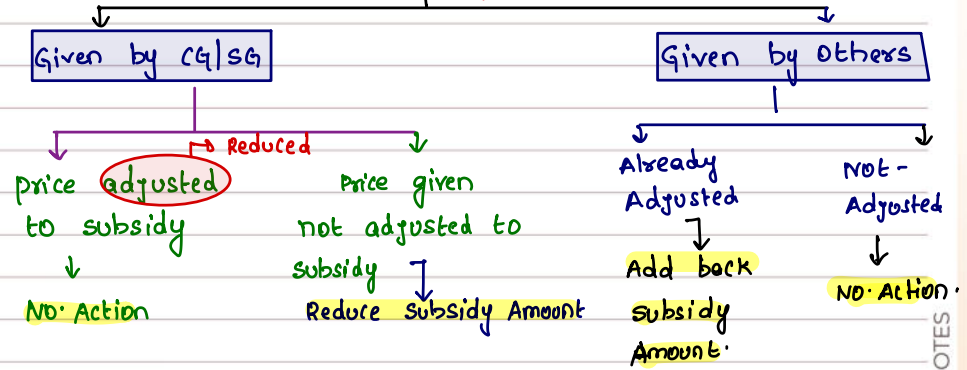 Given by CG/SG
Given by Others
Reduced
price adjusted
to subsidy
No. Action
Price given
not adjusted to
subsidy
Reduce Subsidy Amount
Already
Adjusted
Add back
subsidy
Amount.
Not-
Adjusted
No. Action.
OTES